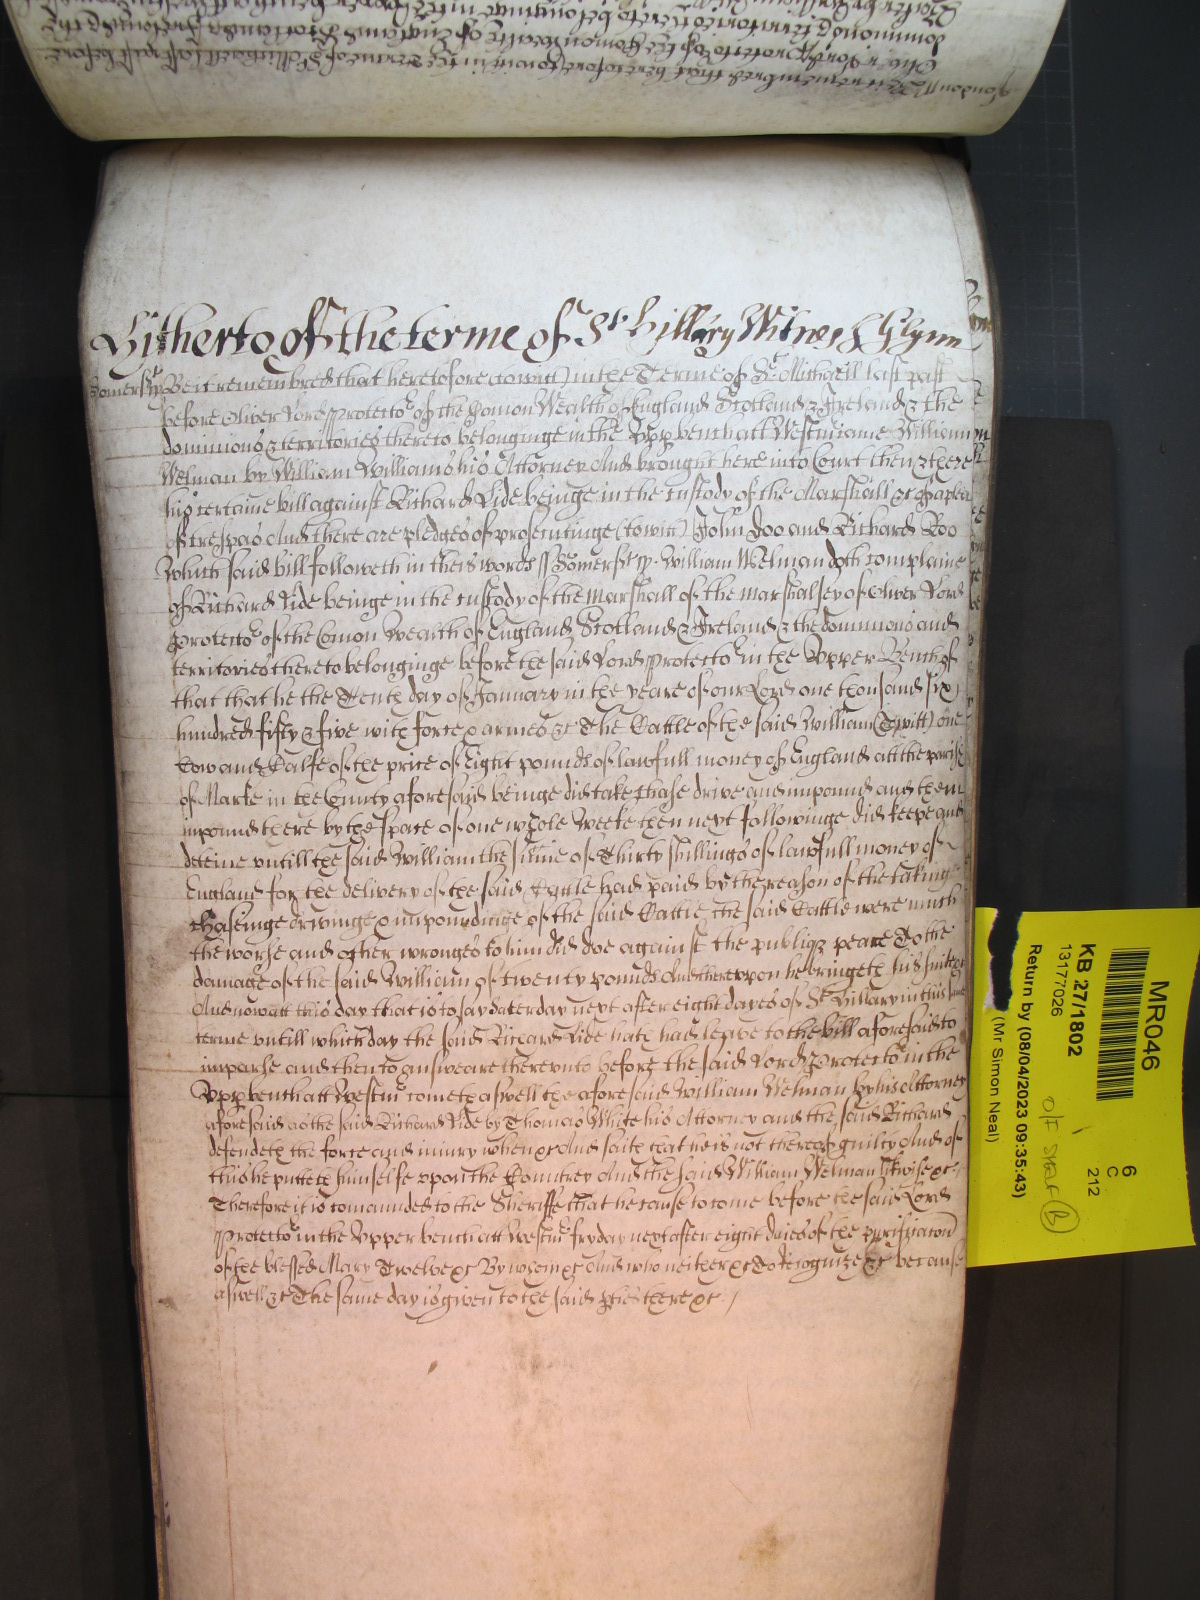 Hitherto of the terme of St Hillary Witnes J Glynn
Somerst ss Be it remembred that heretofore (towitt) in the Terme of St Michaell last past
before Oliver Lord Protector of the Comon Wealth of England Scotland & Ireland & the
dominions & territories thereto belonginge in the Upp bench att Westm came William
Welman by William Williams his Attorney And brought here into Court then & there
his certaine bill against Richard Lide beinge in the custody of the Marshall &c of a plea
of trespas And there are pledges of prosecutinge (towitt) John Doo and Richard Roo
Which said bill followeth in theis words ss Somerst ss William Welman doth complaine
of Richard Lide beinge in the custody of the Marshall of the Marshalsey of Oliver Lord
Protector of the Comon Wealth of England Scotland & Ireland & the dominions and
territories thereto belonginge before the said Lord Protector in the Upper Bench of
that that he the Tenth day of January in the yeare of our Lord one thousand six
hundred fifty & five with force & armes &c The Cattle of the said William (Towitt) one
Cow and Calfe of the price of Eight pounds of lawfull money of England att the parish
of Marke in the County aforesaid beinge did take Chase drive and impound and them
impound there by the space of one whole Weeke then next followinge did keepe and
deteine untill the said William the Sume of Thirty shillings of lawfull money of
England for the delivery of the said Cattle had paid by the reason of the taking
Chaseinge driveinge & impoundinge of the said Cattle the said Cattle were much
the worse and other wronges to him did doe against the publiq peace To the
damage of the said William of twenty pounds And thereupon he bringeth his suite &c
And now att this day that is to say Saterday next after eight dayes of St Hillary in this same
terme untill which day the said Richard Lide hath had leave to the bill aforesaid to
imparle and then to answeare thereunto before the said Lord Protector in the
Upp bench att Westm cometh aswell the aforesaid William Welman by his Attorney
aforesaid as the said Richard Lide by Thomas White his Attorney and the said Richard
defendeth the force and iniury when &c And saith that he is not thereof guilty And of
this he putteth himselfe upon the Countrey And the said William Welman likwise &c
Therefore it is comaunded to the Sheriffe that he cause to come before the said Lord
Protector in the Upper bench att Westm fryday next after eight daies of the purificaton
of the blessed Mary Twelve &c By whom &c And who neither &c To Recognize &c because
aswell &c The same day is given to the said pties there &c
MR046
KB 27/1802
13177026
Return by (08/04/2023 09:35:43)
(Mr Simon Neal)
6
C
212
O/F SHELF B